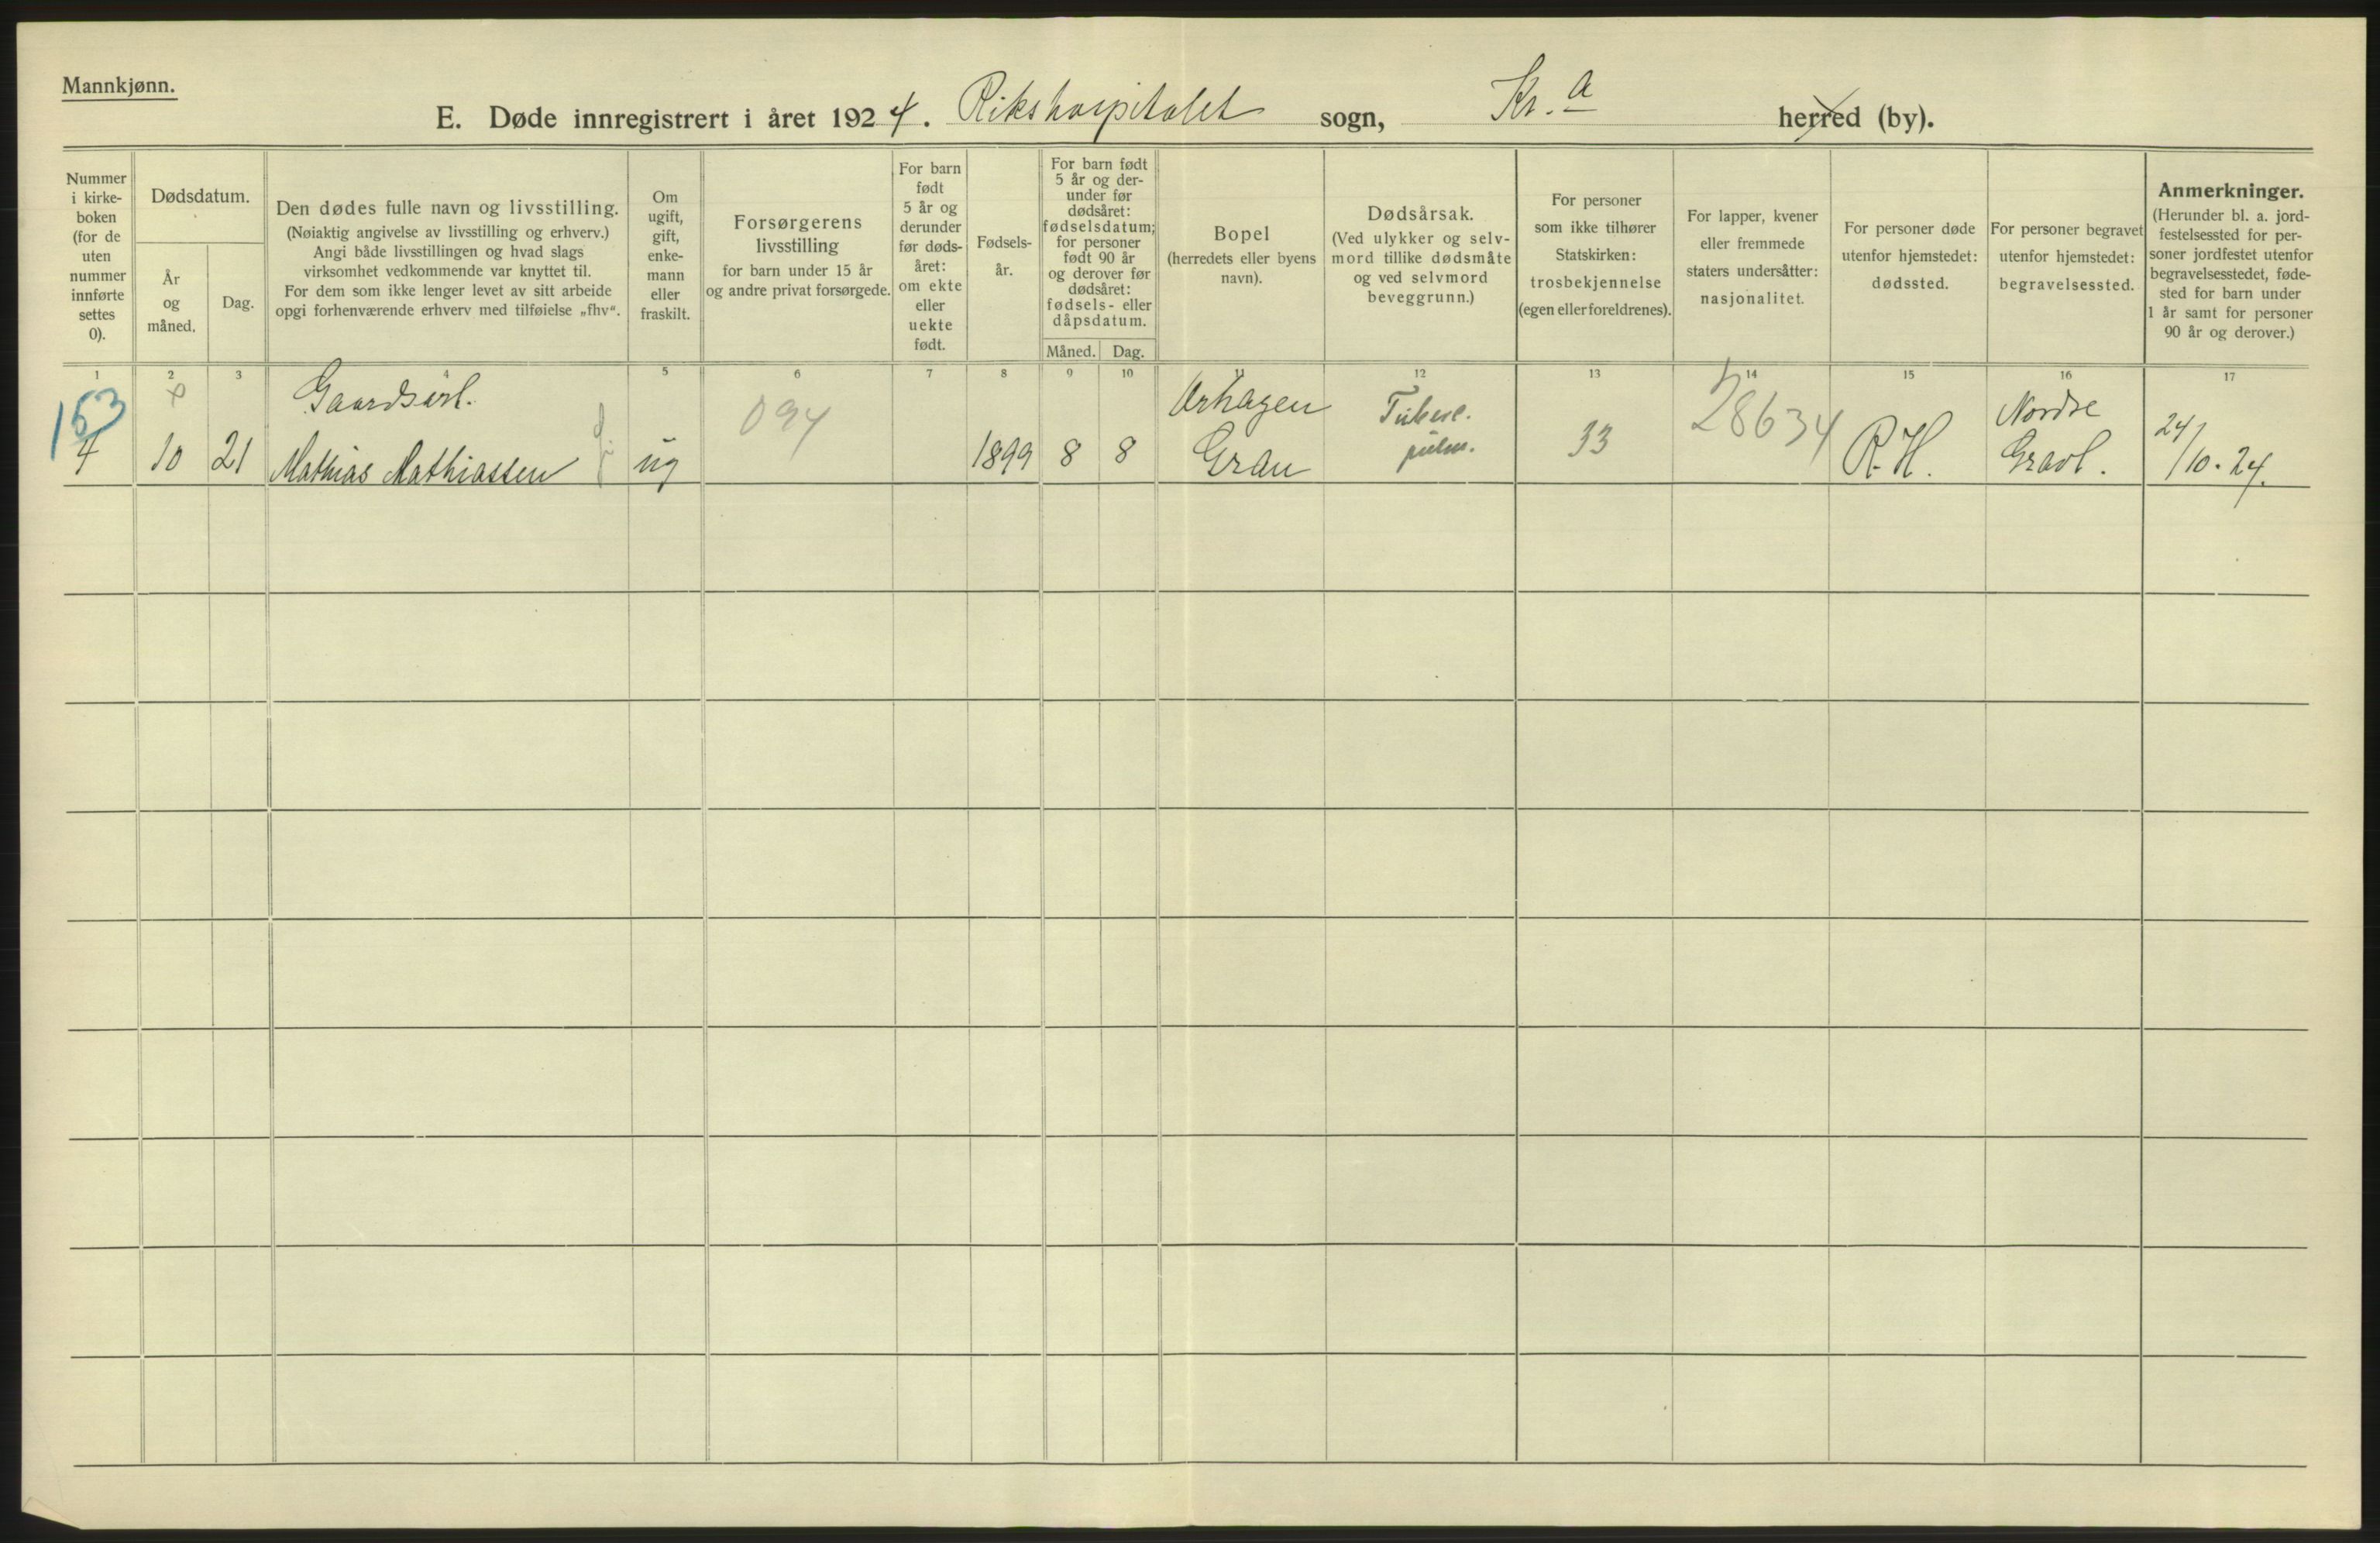 Mannkjønn.
E. Døde innregistrert i året 1924. Rikshospitalet sogn, Kr.a herred (by).
Nummer i kirke-boken (for de uten nummer innførte settes 0).
Dødsdatum.
År og måned.
Dag.
Den dødes fulle navn og livsstilling.
(Nøiaktig angivelse av livsstilling og erhverv.)
Angi både livsstillingen og hvad slags
virksomhet vedkommende var knyttet til.
For dem som ikke lenger levet av sitt arbeide
opgi forhenværende erhverv med tilføielse „fhv“.
Om ugift, gift, enke-mann eller fraskilt.
Forsørgerens
livsstilling
for barn under 15 år
og andre privat forsørgede.
For barn født 5 år og derunder før døds-året: om ekte eller uekte født.
Fødsels-år.
For barn født 5 år og der-under før dødsåret: fødselsdatum; for personer født 90 år og derover før dødsåret: fødsels- eller dåpsdatum.
Måned.
Dag.
Bopel
(herredets eller byens
navn).
Dødsårsak.
(Ved ulykker og selv-
mord tillike dødsmåte
og ved selvmord
beveggrunn.)
For personer
som ikke tilhører
Statskirken:
trosbekjennelse
(egen eller foreldrenes).
For lapper, kvener
eller fremmede
staters undersåtter:
nasjonalitet.
For personer døde
utenfor hjemstedet:
dødssted.
For personer begravet
utenfor hjemstedet:
begravelsessted.
Anmerkninger.
(Herunder bl. a. jord-
festelsessted for per-
soner jordfestet utenfor
begravelsesstedet, føde-
sted for barn under
1 år samt for personer
90 år og derover.)
1 2 3 4 5 6 7 8 9 10 11 12 13 14 15 16 17
153
4
10
21
Gaardsarb.
Mathias Mathiassen
ug
094
1899
8
8
Gran
Tuberc.
pulm.
33
28634
R.H.
Nordre
Gravl.
24/10.24.